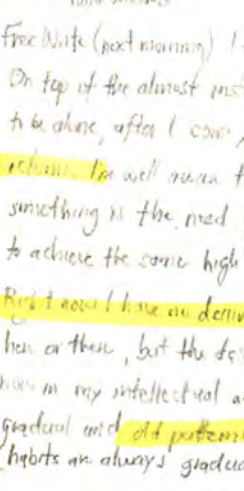 Free Write (next morning)
On top of the almost ins
to be alone, after I com
I'm well aware t
something is the need
to achieve the same high
Right now I have no desire
her or them, but the de
how in my intellectual a
gradual and old patterns
(habits are always gradua